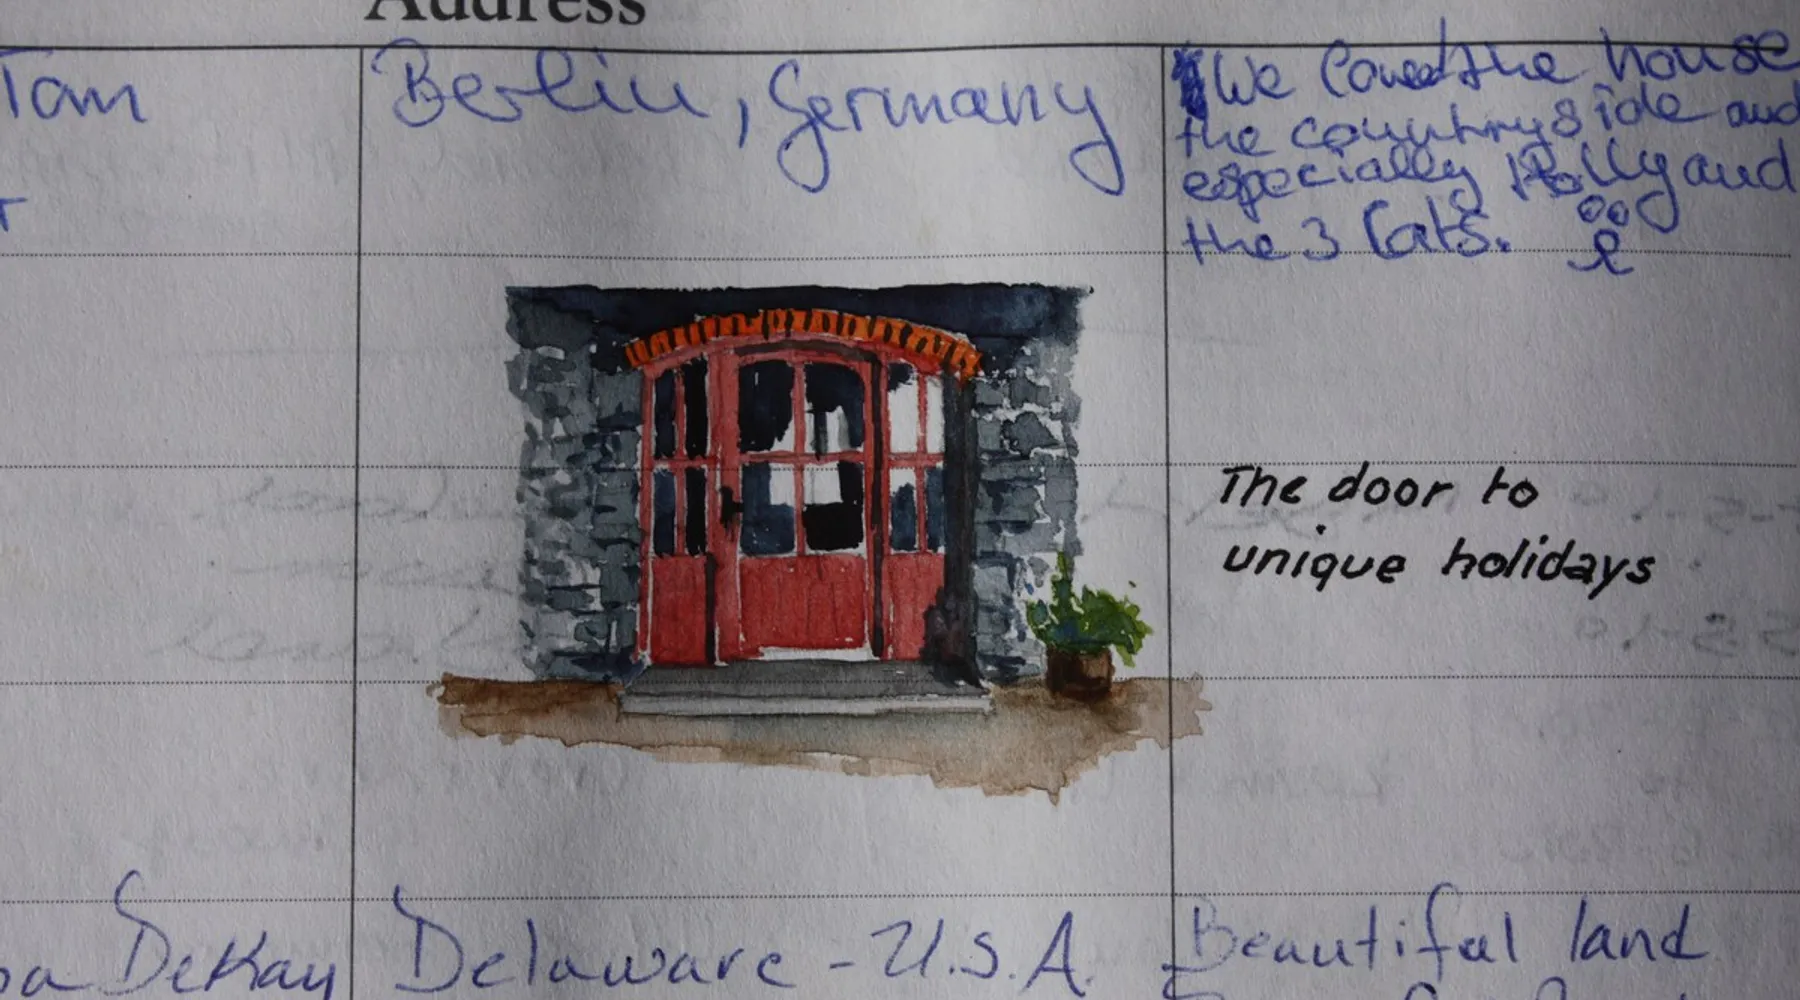 Address
Tam
Berlin, Germany
We loved the house
the countryside and
especially Holly and
the 3 Cats.
The door to
unique holidays
DeKay
Delaware - U.S.A.
Beautiful land